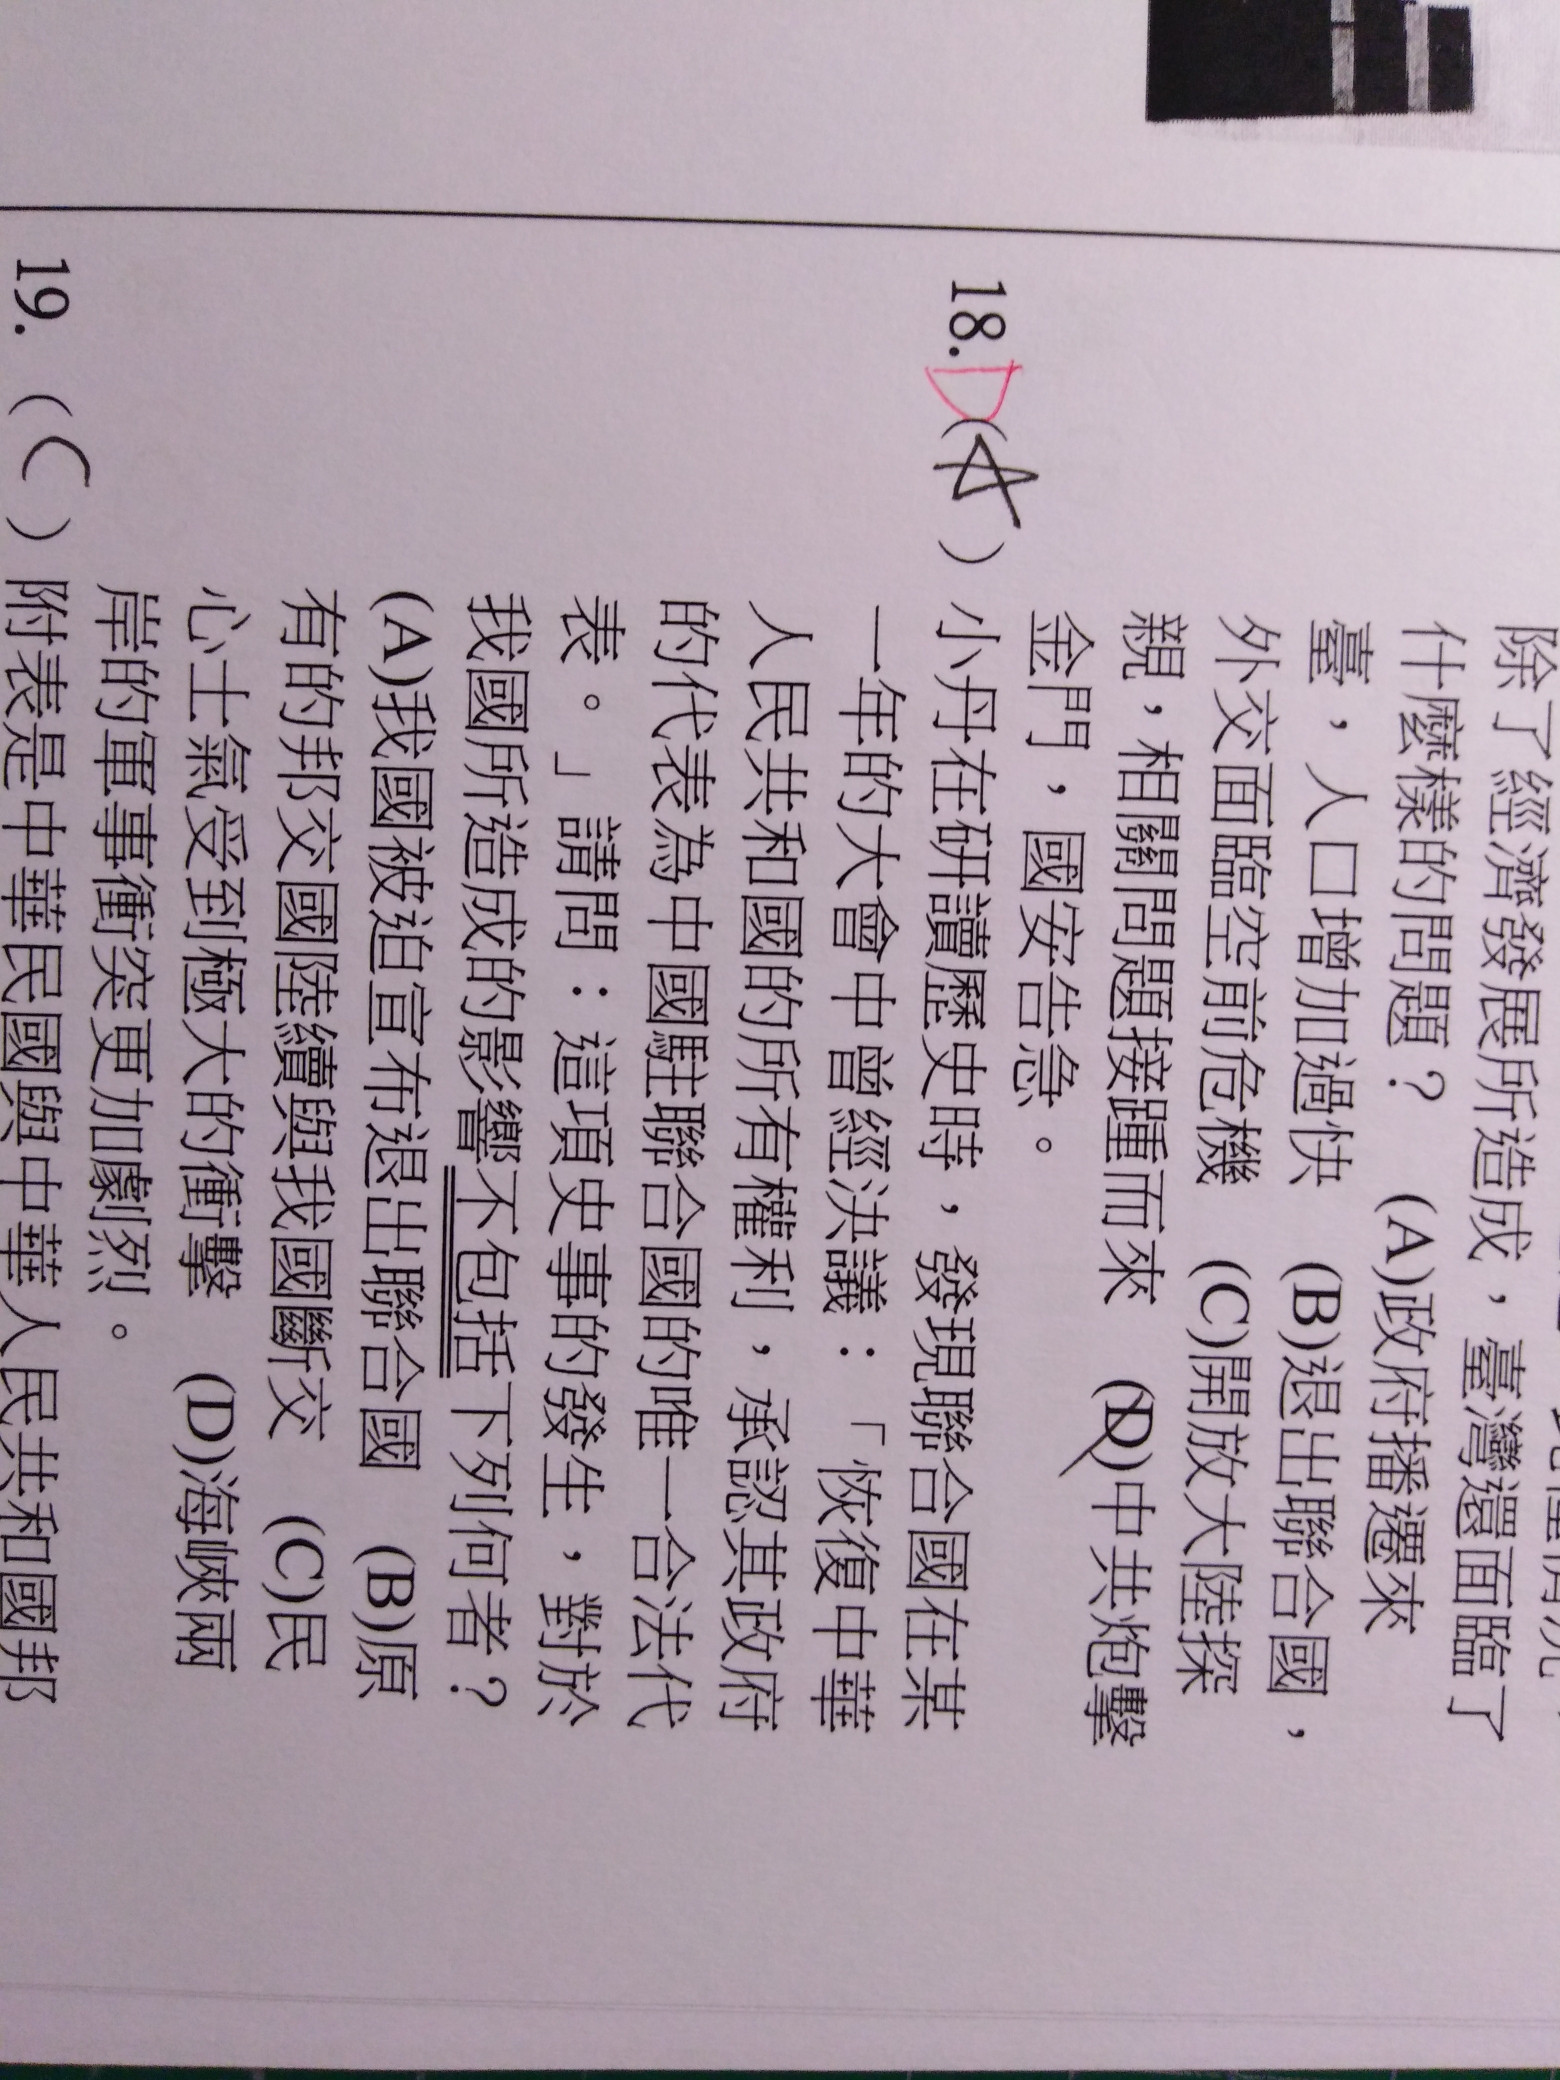 除了經濟發展所造成，臺灣還面臨了
什麼樣的問題？ (A)政府播遷來
臺，人口增加過快 (B)退出聯合國，
外交面臨空前危機 (C)開放大陸探
親，相關問題接踵而來 (D)中共炮擊
金門，國安告急。
18.D(A) 小丹在研讀歷史時，發現聯合國在某
一年的大會中曾經決議：「恢復中華
人民共和國的所有權利，承認其政府
的代表為中國駐聯合國的唯一合法代
表。」請問：這項史事的發生，對於
我國所造成的影響不包括下列何者？
(A)我國被迫宣布退出聯合國 (B)原
有的邦交國陸續與我國斷交 (C)民
心士氣受到極大的衝擊 (D)海峽兩
岸的軍事衝突更加劇烈。
19. (C) 附表是中華民國與中華人民共和國邦